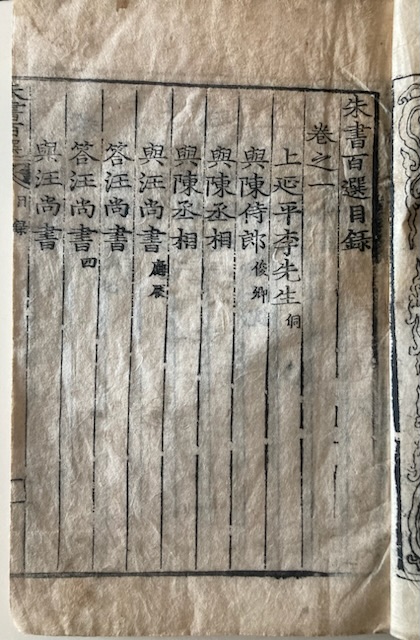 朱書百選目錄
卷之一
上延平李先生侗
與陳侍郎俊卿
與陳丞相
與陳丞相
與汪尚書應辰
答汪尚書
答汪尚書四
與汪尚書
朱書百選 目錄
一